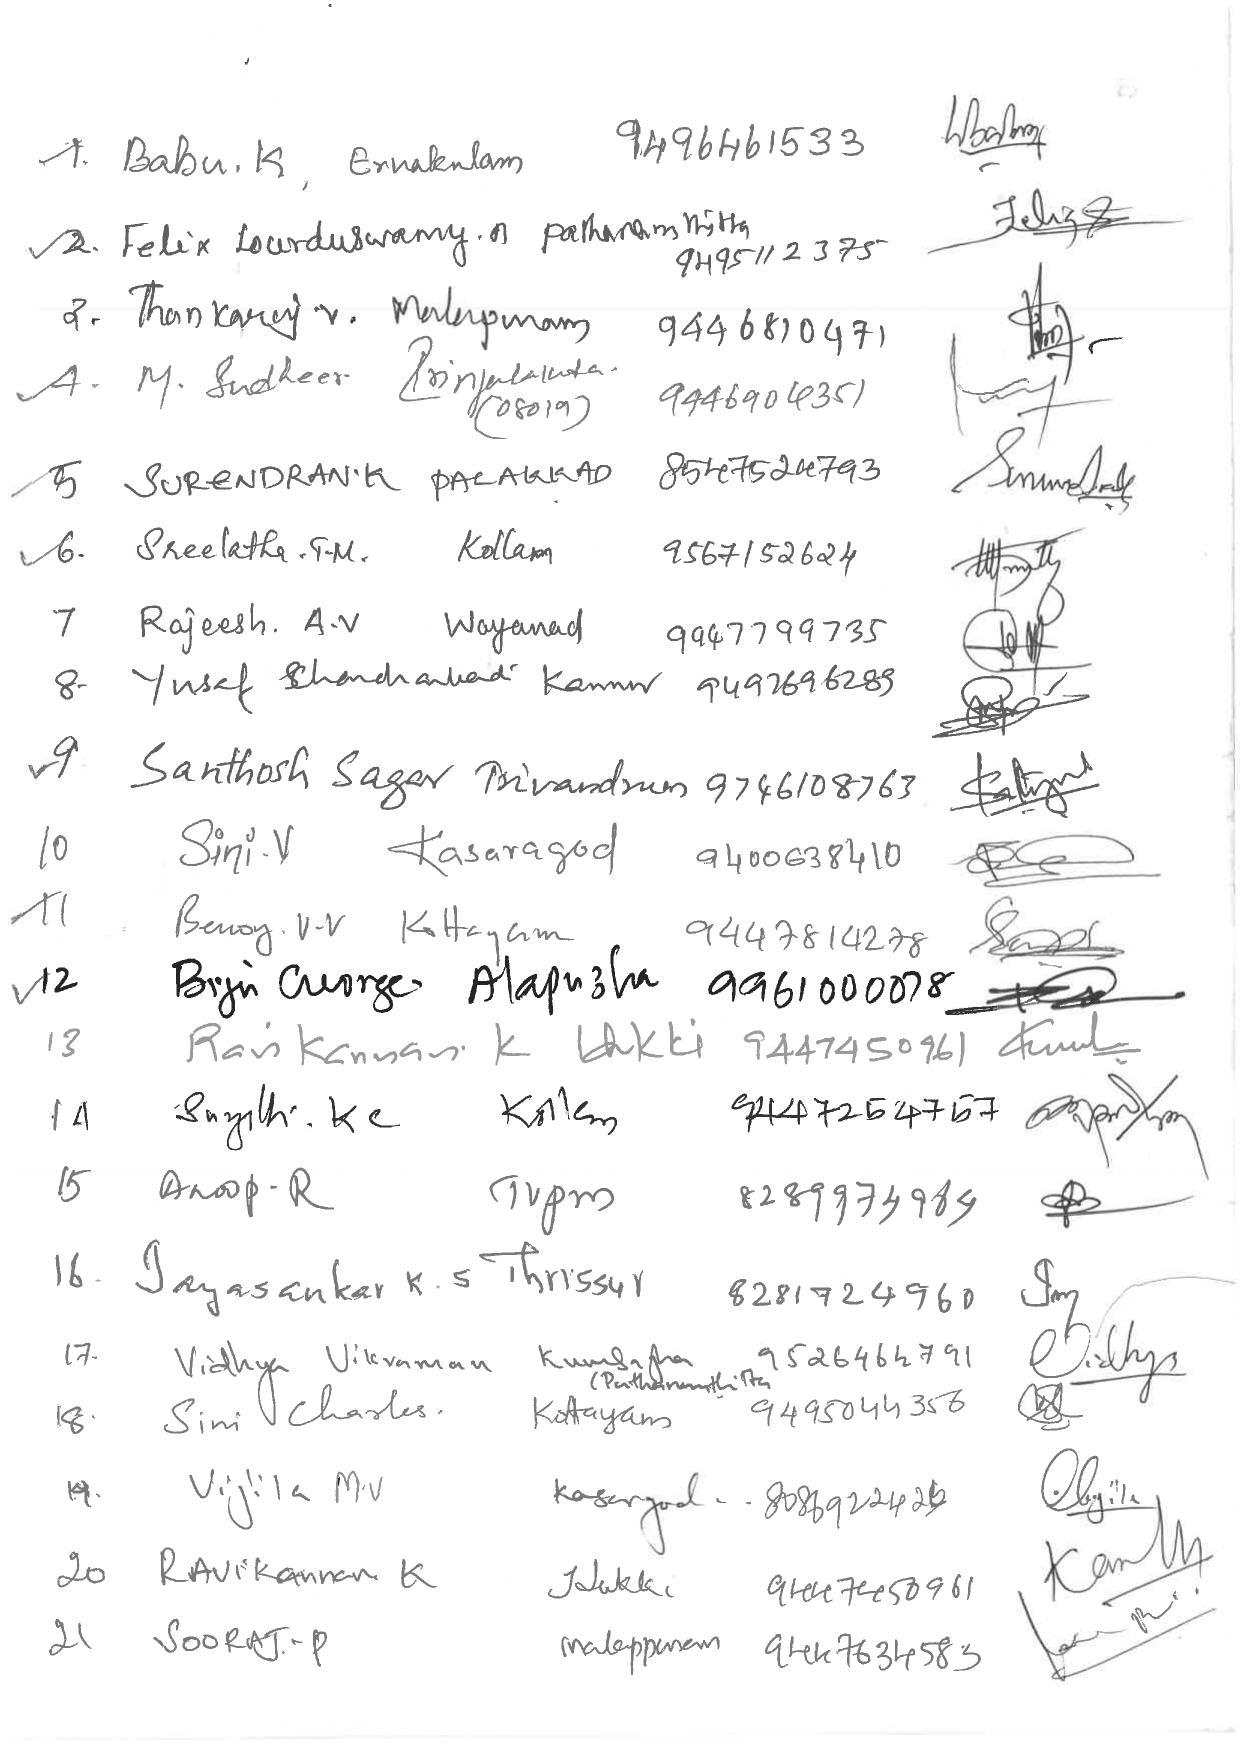 1. Babu. K, Ernakulam 9496461533
2. Felix Lourduswamy. A Pathanamthitta
9495112375
3. Thankaraj V. Malapuram 9446810471
4. M. Sudheer Irinjalakuda.
(08019) 9446904351
5 SURENDRAN.K PALAKKAD 8547524793
6. Sreelatha. T.M. Kollam 9567152624
7 Rajeesh. A.V Wayanad 9947799735
8. Yusaf Kannur 9497696289
9 Santhosh Sagar Trivandrum 9746108763
10 Sini. V Kasaragod 9400638410
11 Benoy. V.V Kottayam 9447814278
12 Biju George Alapuzha 9961000078
13 Ravikannan. K Idukki 9447450961
14 Sujith. K C Kollam 9447254757
15 Anoop. R Tvpm
16. Jayasankar K. S Thrissur 8281724960
17. Vidhya Vikraman Kumbazha 9526464791
(Pathanamthitta
18. Sini Charles. Kottayam 9495044356
19. Vijila M.V Kasargod
20 RAVIKannan K Idukki 9447450961
21 SOORAJ. P malappuram 9447634583